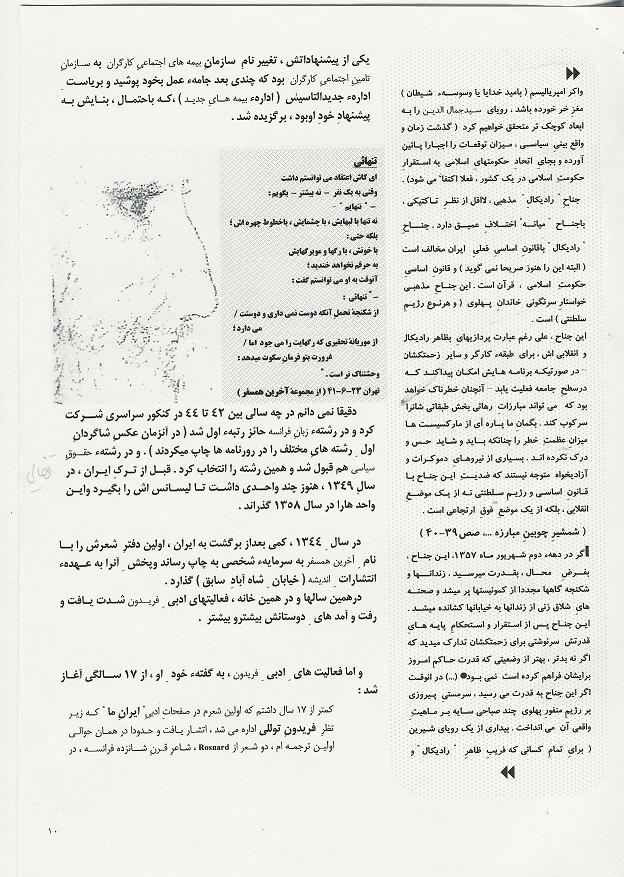 واکر امپریالیسم ( بامید خدایا یا وسوسهء شیطان )
مغز خر خورده باشد ، رویای سیدجمال الدین را به
ابعاد کوچک تر متحقق خواهیم کرد ( گذشت زمان و
واقع بینی سیاسی ، میزان توقعات را اجبارا پائین
آورده و بجای اتحاد حکومتهای اسلامی به استقرار
حکومت اسلامی در یک کشور ، فعلا اکتفا می شود) .
جناح رادیکال مذهبی ، لااقل از نظر تاکتیکی ،
باجناح "میانه" اختلاف عمیق دارد . جناح
"رادیکال" باقانون اساسی فعلی ایران مخالف است
( البته این را هنوز صریحا نمی گوید ) و قانون اساسی
حکومت اسلامی ، قرآن است . این جناح مذهبی
خواستار سرنگونی خاندان پهلوی ( و هرنوع رژیم
سلطنتی ) است .
این جناح ، علی رغم عبارت پردازیهای بظاهر رادیکال
و انقلابی اش ، برای طبقهء کارگر و سایر زحمتکشان
- در صورتیکه برنامه هایش امکان پیداکنند که
درسطح جامعه فعلیت یابد - آنچنان خطرناک خواهد
بود که می تواند مبارزات رهائی بخش طبقاتی شانرا
سرکوب کند . بگمان ما پاره ای از مارکسیست ها
میزان عظمت خطر را چنانکه باید و شاید حس و
درک نکرده اند . بسیاری از نیروهای دموکرات و
آزادیخواه متوجه نیستند که ضدیت این جناح با
قانون اساسی و رژیم سلطنتی نه از یک موضع
انقلابی ، بلکه از یک موضع فوق ارتجاعی است .
( شمشیر چوبین مبارزه ... ، صص ۳۹-۴۰ )
اگر در دهه دوم شهریور ماه ۱۳۵۷ ، این جناح ،
بفرض محال ، بقدرت میرسید ، زندانها و
شکنجه گاهها مجددا از کمونیستها پر میشد و صحنه
های شلاق زنی از زندانها به خیابانها کشانده میشد .
این جناح پس از استقرار و استحکام پایه های
قدرتش سرنوشتی برای زحمتکشان تدارک میدید که
اگر نه بدتر ، بهتر از وضعیتی که قدرت حاکم امروز
برایشان فراهم کرده است نمی بود (...) در انوقت
اگر این جناح به قدرت می رسید ، سرمستی پیروزی
بر رژیم منفور پهلوی چند صباحی سایه بر ماهیت
واقعی آن می انداخت . بیداری از یک رویای شیرین
( برای تمام کسانی که فریب ظاهر "رادیکال" و
یکی از پیشنهاداتش ، تغییر نام سازمان بیمه های اجتماعی کارگران به سازمان
تامین اجتماعی کارگران بود که چندی بعد جامهء عمل بخود پوشید و بریاست
ادارهء جدیدالتاسیس ( ادارهء بیمه های جدید ) ،که باحتمال ، بنایش به
پیشنهاد خود اوبود ، برگزیده شد .
تنهائی
ای کاش اعتقاد می توانستم داشت
وقتی به یک نفر - نه بیشتر - بگویم :
- "تنهایم" -
نه تنها با لبهایش ، با چشمایش ، باخطوط چهره اش ؛
بلکه حتی :
با خونش ، با رگها و مویرگهایش
به حرفم نخواهد خندید ؛
آنوقت به او می توانستم گفت :
- "تنهائی :
از شکنجهٔ تحمل آنکه دوست نمی داری و دوستت /
می دارد ؛
از موریانهٔ تحقیری که رگهایت را می جود اما /
غرورت بتو فرمان سکوت میدهد :
وحشتناک تر است ."
تهران ۲۳-۶-۴۱ ( از مجموعهٔ آخرین همسفر )
دقیقا نمی دانم در چه سالی بین ۴۲ تا ۴۴ در کنکور سراسری شرکت
کرد و در رشتهء زبان فرانسه حائز رتبهء اول شد ( در آنزمان عکس شاگردان
اول رشته های مختلف را در روزنامه ها چاپ میکردند ) . و در رشتهء حقوق
سیاسی هم قبول شد و همین رشته را انتخاب کرد . قبل از ترک ایران ، در
سال ۱۳۴۹ ، هنوز چند واحدی داشت تا لیسانس اش را بگیرد واین
واحد هارا در سال ۱۳۵۸ گذراند .
در سال ۱۳۴۴ ، کمی بعداز برگشت به ایران ، اولین دفتر شعرش را با
نام آخرین همسفر به سرمایهء شخصی به چاپ رساند وپخش آنرا به عهدهء
انتشارات اندیشه ( خیابان شاه آباد سابق ) گذارد .
درهمین سالها و در همین خانه ، فعالیتهای ادبی فریدون شدت یافت و
رفت و آمد های دوستانش بیشترو بیشتر .
و اما فعالیت های ادبی فریدون ، به گفتهء خود او ، از ۱۷ سالگی آغاز
شد :
کمتر از ۱۷ سال داشتم که اولین شعرم در صفحات ادبی "ایران ما" که زیر
نظر فریدون توللی اداره می شد ، انتشار یافت و حدودا در همان حوالی
اولین ترجمه ام ، دو شعر از Rosnard ، شاعر قرن شانزده فرانسه ، در
۱۰